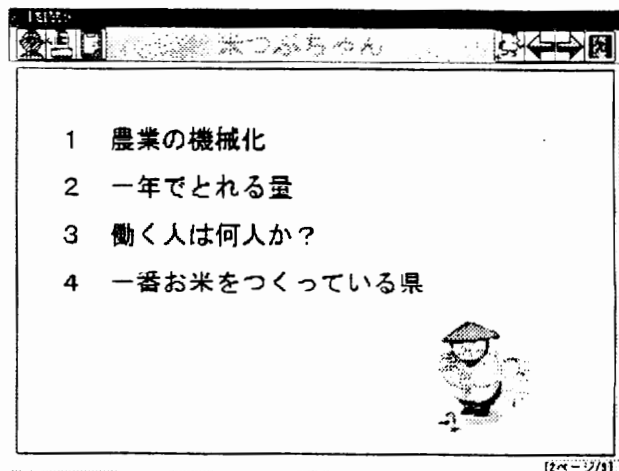 米つぶちゃん
1 農業の機械化
2 一年でとれる量
3 働く人は何人か？
4 一番お米をつくっている県